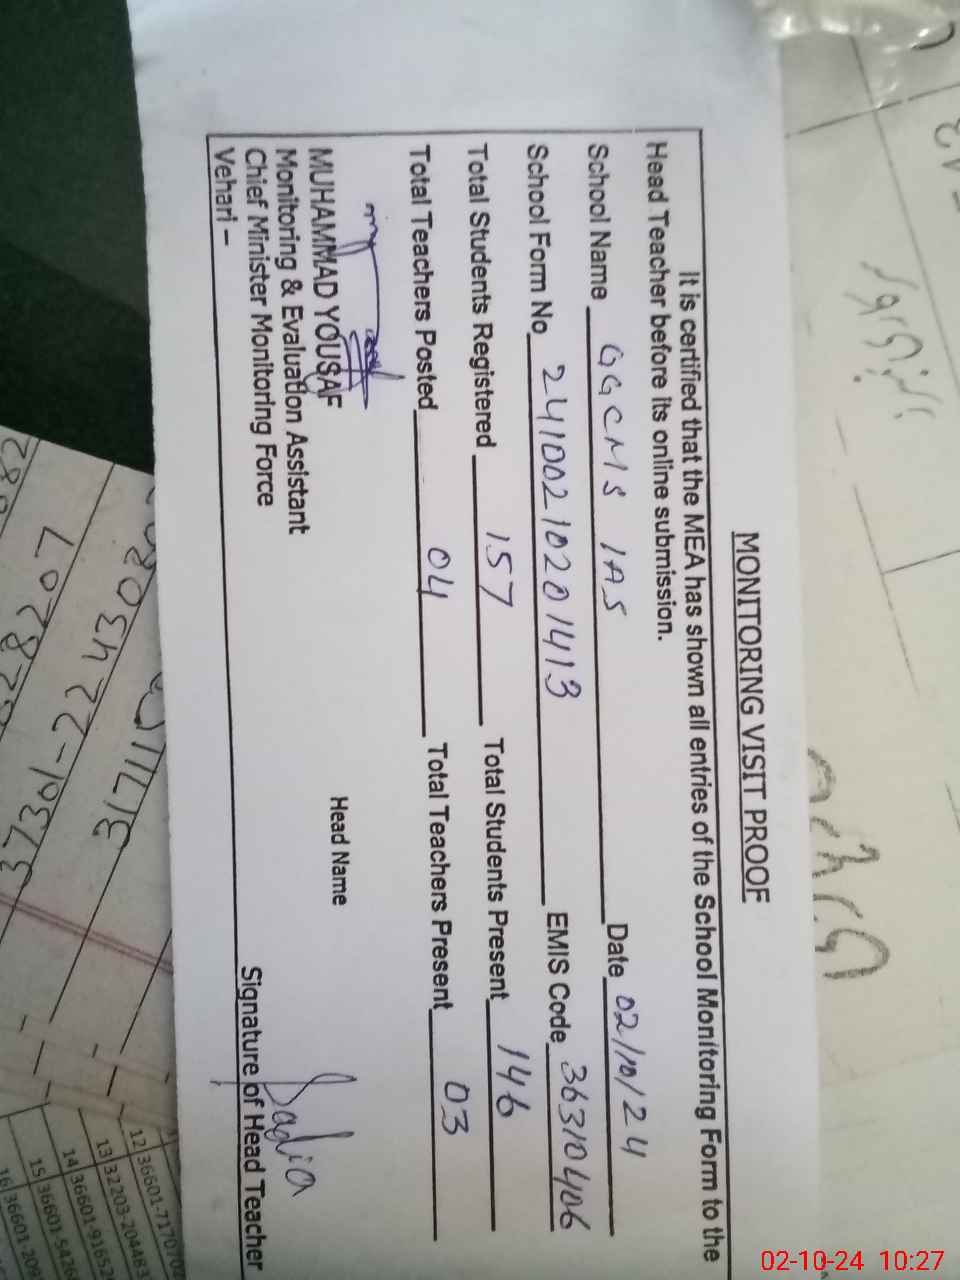 MONITORING VISIT PROOF
It is certified that the MEA has shown all entries of the School Monitoring Form to the
Head Teacher before its online submission.
School Name GGCMS 1AS Date 02/10/24
School Form No 24100210201413 EMIS Code 36310406
Total Students Registered 157 Total Students Present 146
Total Teachers Posted 04 Total Teachers Present 03
MUHAMMAD YOUSAF Head Name
Monitoring & Evaluation Assistant
Chief Minister Monitoring Force Sadia
Vehari – Signature of Head Teacher
12 36601-71707
13 32203-204483
14 36601-91652
15 36601-5426
16 36601-209
02-10-24 10:27